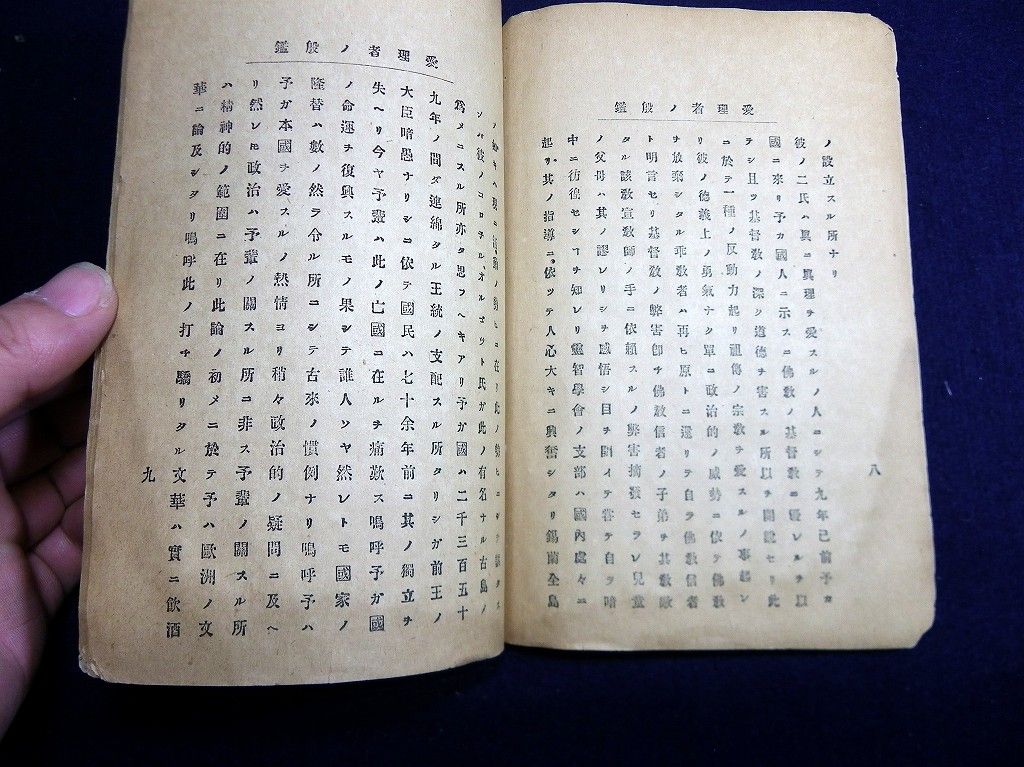 愛理者ノ殷鑑
ノ設立スル所ナリ
彼ノ二氏ハ眞ニ眞理ヲ愛スルノ人ニシテ九年已前予カ
國ニ來リ予カ國人ニ示スニ佛敎ノ基督敎ニ優レルヲ以
テシ且ツ基督敎ノ深ク道德ヲ害スル所以ヲ開說セリ此
ニ於テ一種ノ反動力起リ祖傳ノ宗敎ヲ愛スルノ事起レ
リ彼ノ德義上ノ勇氣ナク單ニ政治的ノ威勢ニ依テ佛敎
ヲ放棄シタル乖敎者ハ再ヒ原トニ還リテ自ラ佛敎信者
ト明言セリ基督敎ノ弊害卽チ佛敎信者ノ子弟ヲ其敎敵
タル該敎宣敎師ノ手ニ依賴スルノ弊害摘發セラレ兒童
ノ父母ハ其ノ謬レリシヲ感悟シ目ヲ開イテ甞テ自ラ暗
中ニ彷徨セシヿヲ知レリ靈智學會ノ支部ハ國內處々ニ
起リ其ノ指導ニ依ツテ人心大キニ興奮シタリ錫蘭全島
八
愛理者ノ殷鑑
ソハ彼ノコロチルオルコット氏ガ此ノ有名ナル古島ノ
爲メニスル所亦タ思フヘキアリ予カ國ハ二千三百五十
九年ノ間ダ連綿タル王統ノ支配スル所タリシガ前王ノ
大臣暗愚ナリシニ依テ國民ハ七十余年前ニ其ノ獨立ヲ
失ヘリ今ヤ予輩ハ此ノ亡國ニ在ルヲ痛歎ス嗚呼予ガ國
ノ命運ヲ復興スルモノ果シテ誰人ソヤ然レトモ國家ノ
隆替ハ數ノ然ラ令ル所ニシテ古來ノ慣例ナリ嗚呼予ハ
予ガ本國ヲ愛スルノ熱情ヨリ稍々政治的ノ疑問ニ及ヘ
リ然レ𪜈政治ハ予輩ノ關スル所ニ非ス予輩ノ關スル所
ハ精神的ノ範圍ニ在リ此論ノ初メニ於テ予ハ歐洲ノ文
華ニ論及シタリ嗚呼此ノ打チ驕リタル文華ハ實ニ飮酒
九